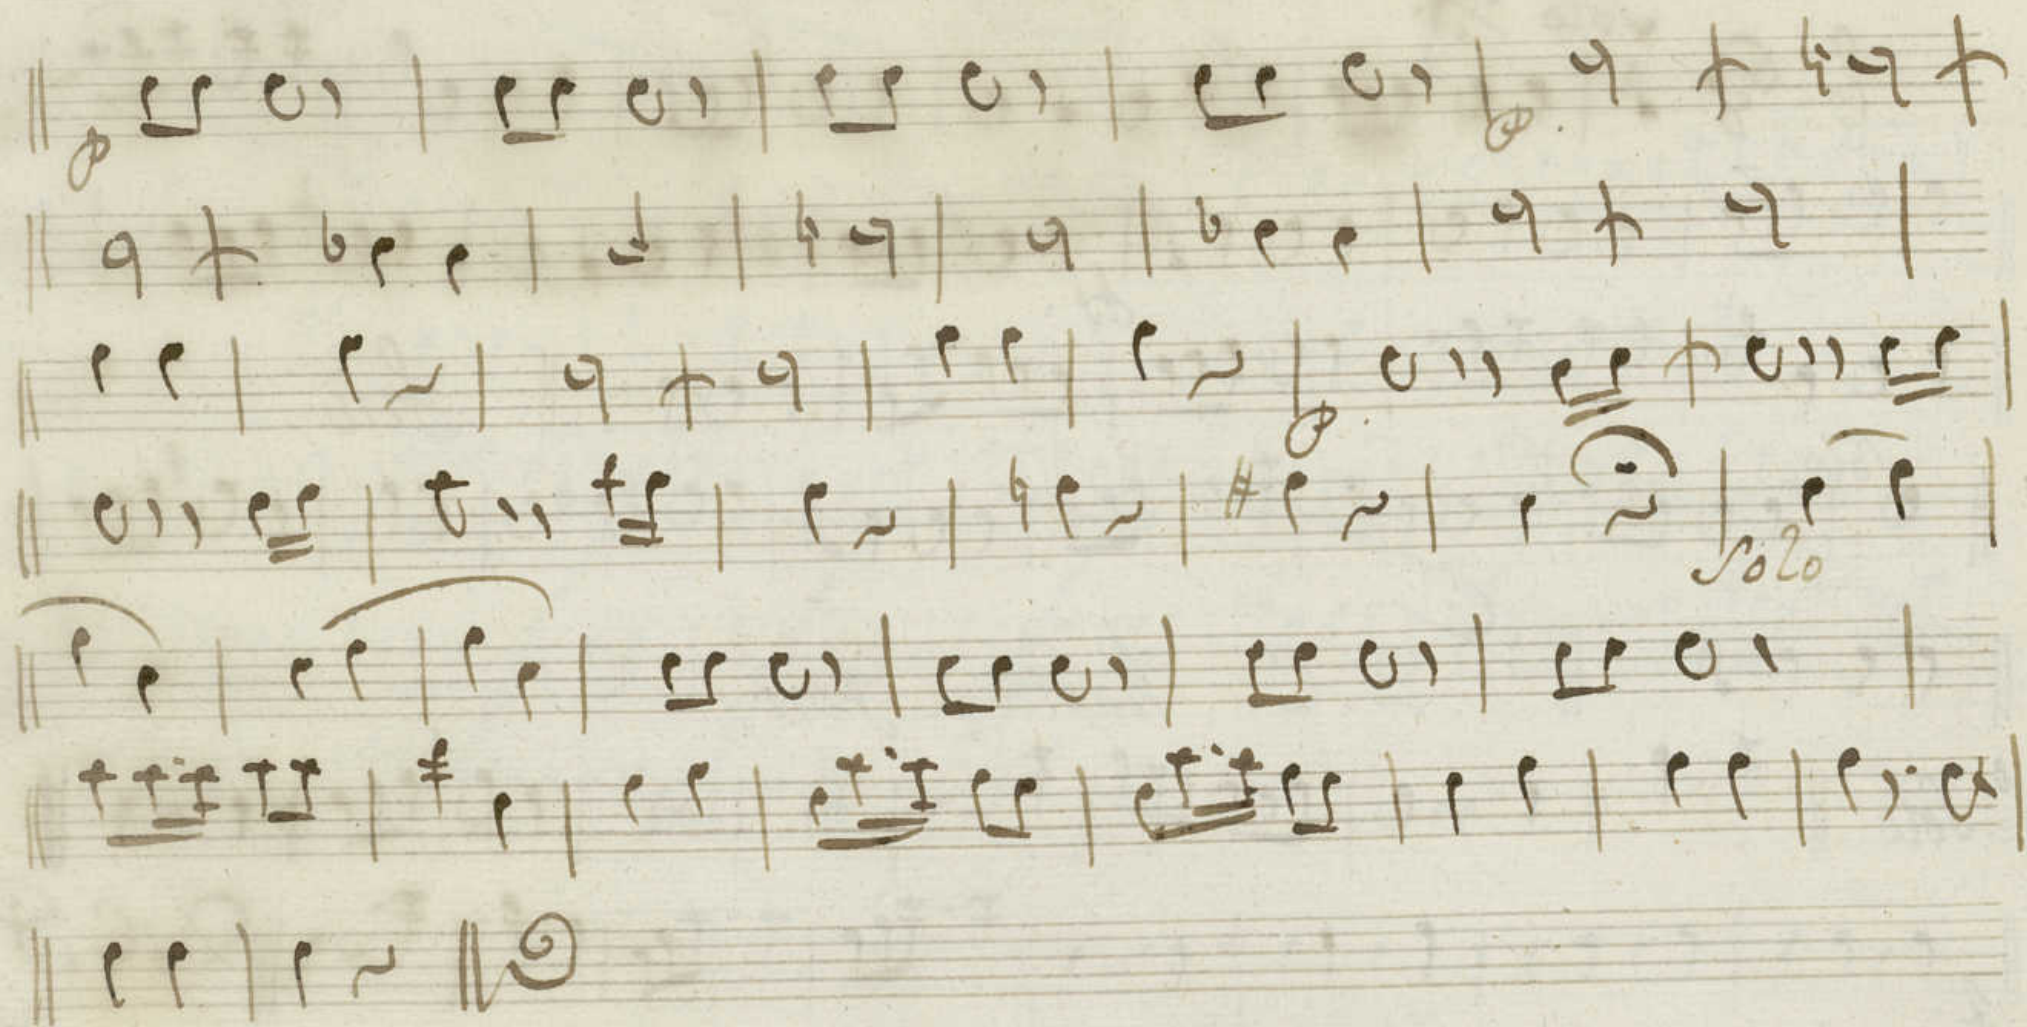 P
P.
P.
Solo